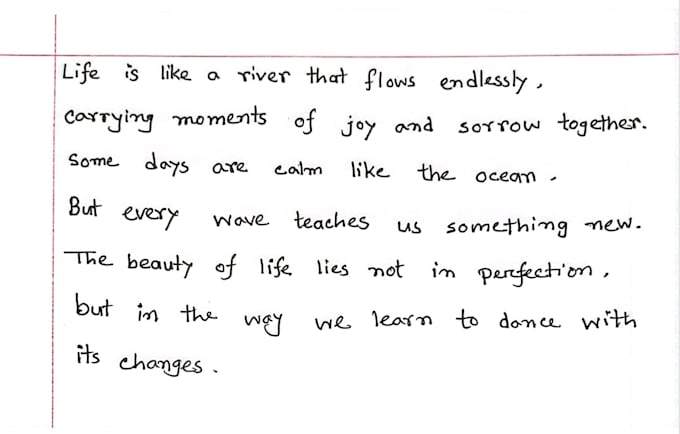 Life is like a river that flows endlessly,
carrying moments of joy and sorrow together.
Some days are calm like the ocean.
But every wave teaches us something new.
The beauty of life lies not in perfection,
but in the way we learn to dance with
its changes.